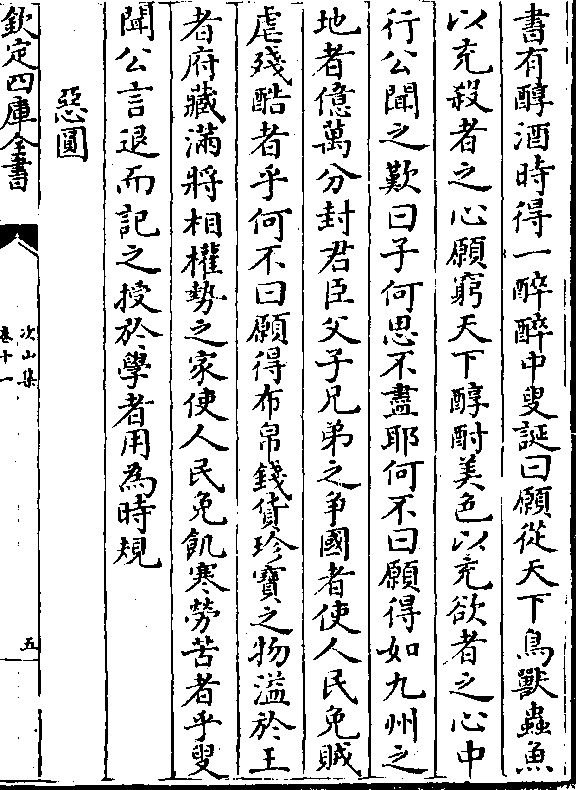 書有醇酒時得一醉醉中叟誕曰願從天下鳥獸蟲魚
以充殺者之心願窮天下醇酎美色以充欲者之心中
行公聞之歎曰子何思不盡耶何不曰願得如九州之
地者億萬分封君臣父子兄弟之爭國者使人民免賊
虐殘酷者乎何不曰願得布帛錢貨珍寶之物溢於王
者府藏滿將相權勢之家使人民免飢寒勞苦者乎叟
聞公言退而記之授於學者用為時規
惡圓
欽定四庫全書
次山集
卷十一
五